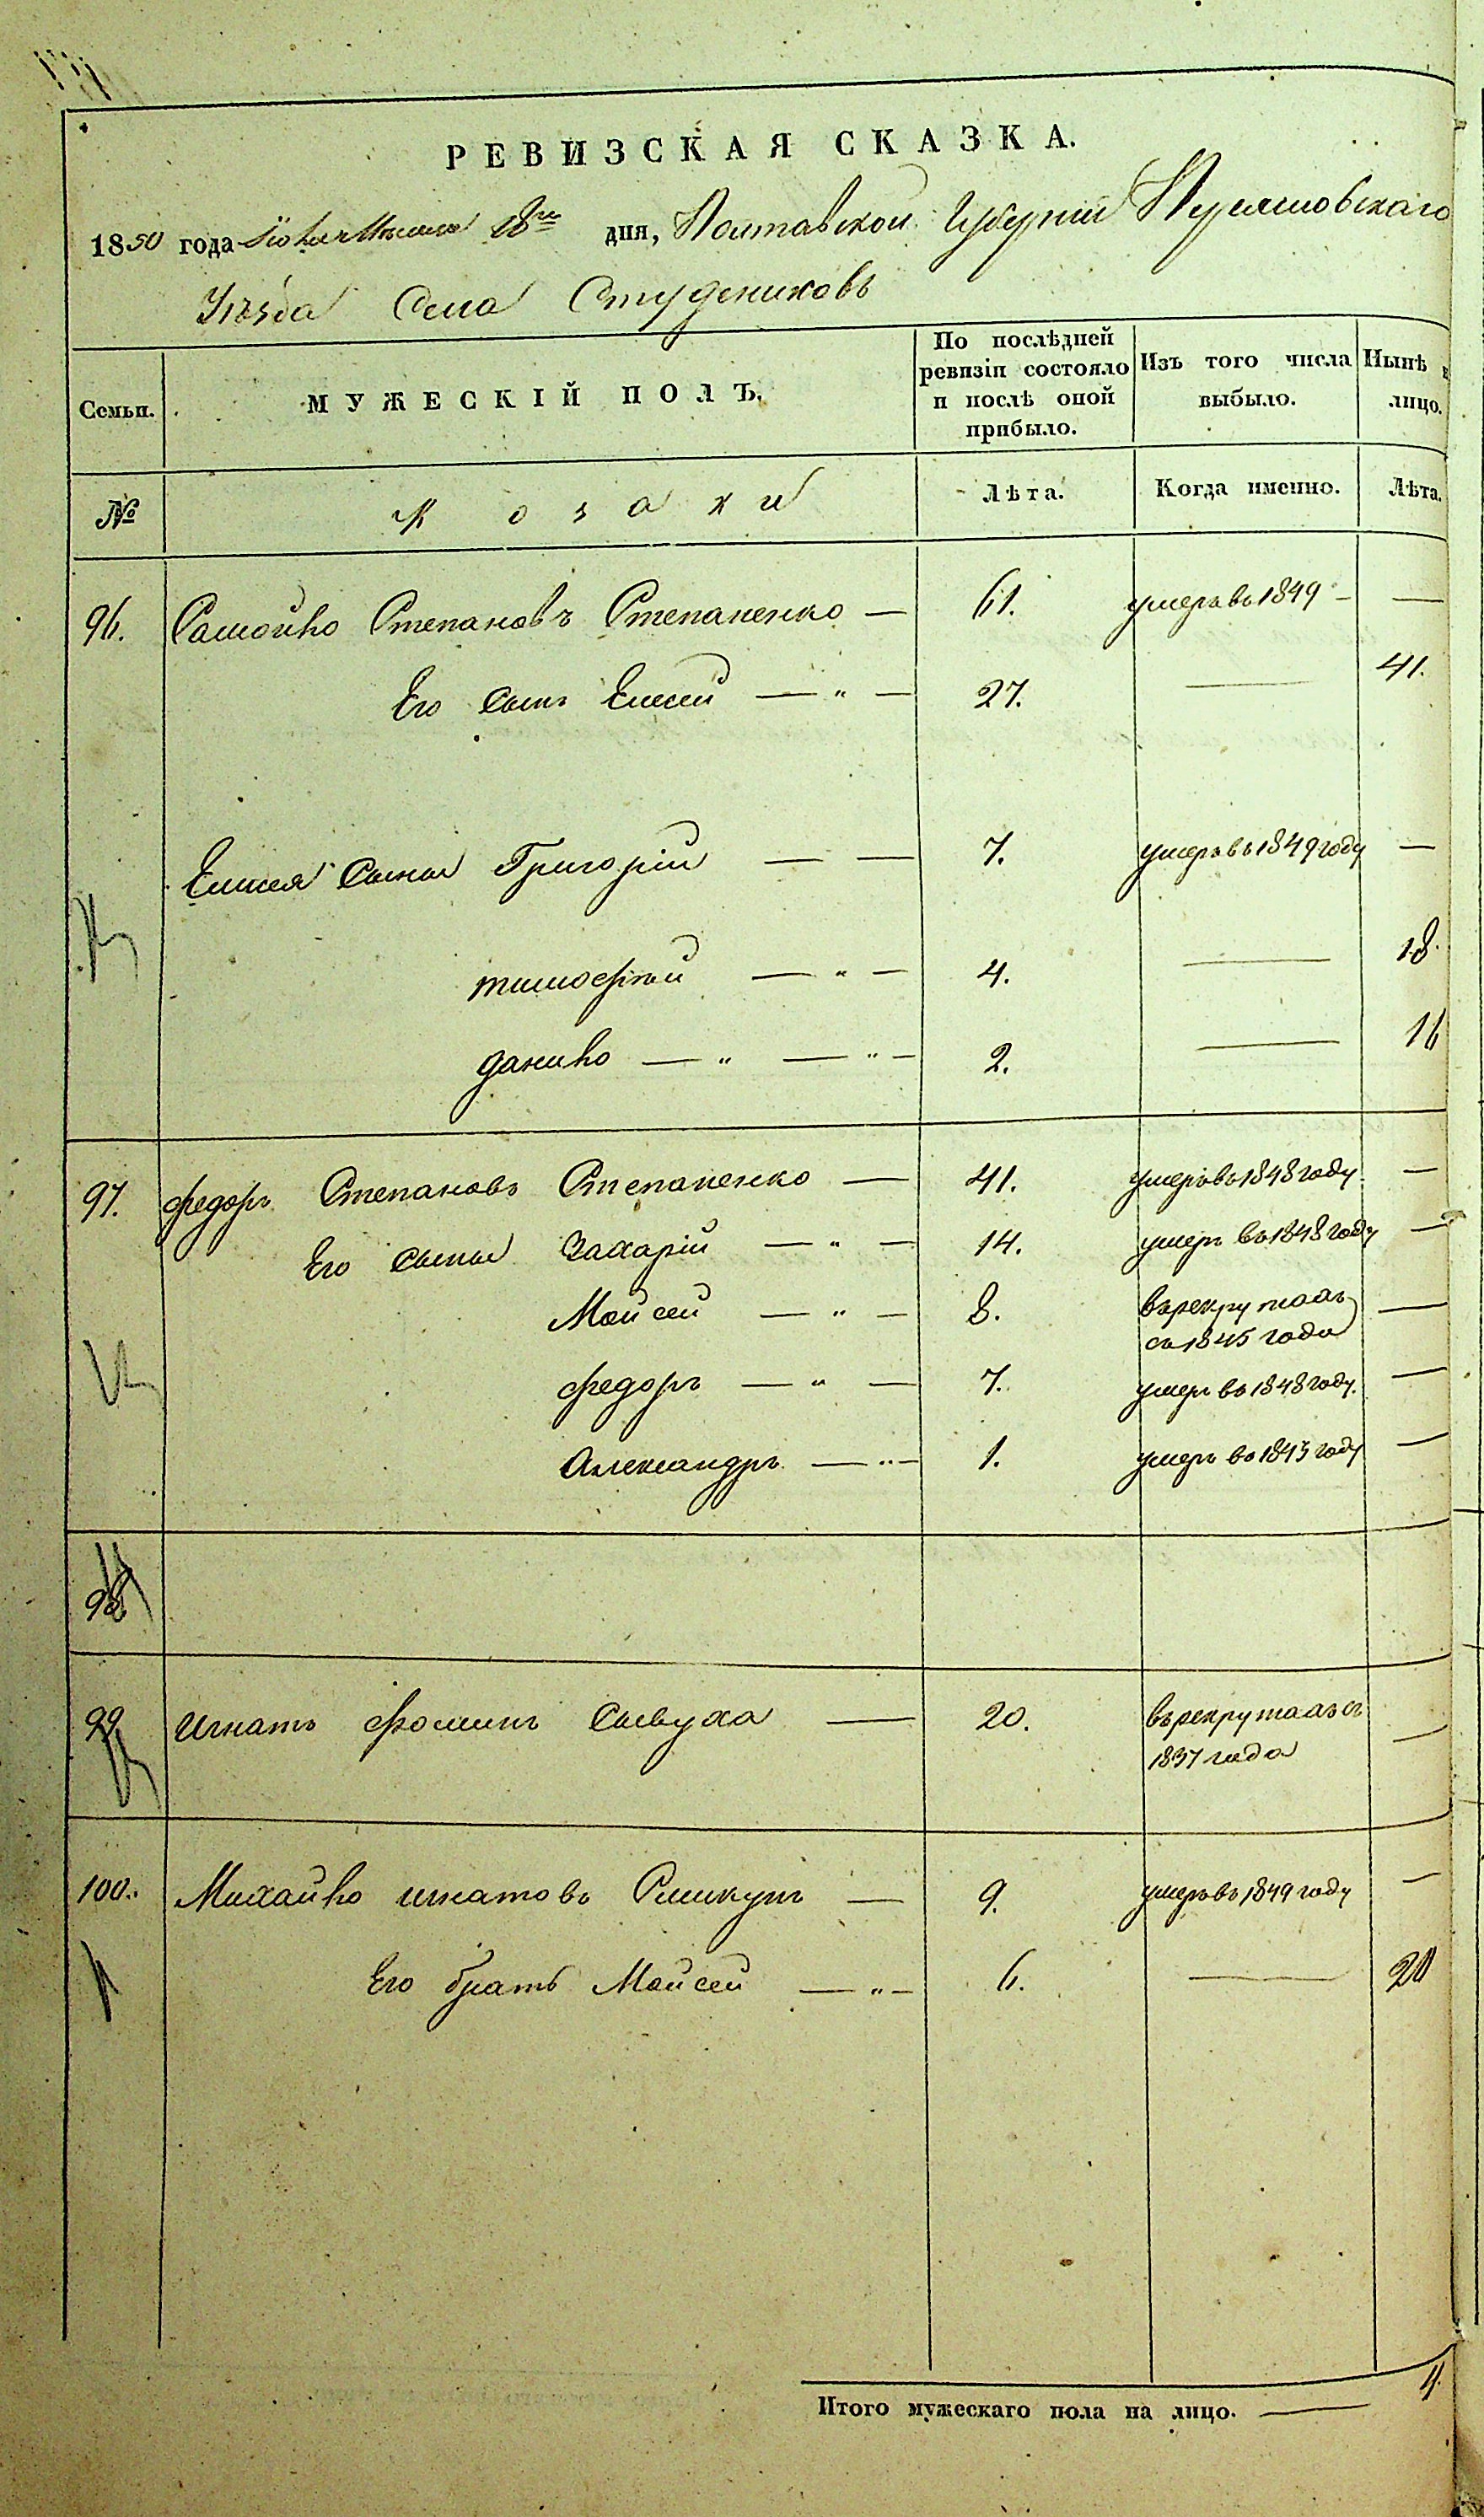 РЕВИЗСКАЯ СКАЗКА.
1850 года Мѣсяца 18го дня, Полтавской Губерніи Переяславского
Уѣзда Села Студениковъ
Семьи. МУЖЕСКІЙ ПОЛЪ. По послѣдней ревизіи состояло и послѣ оной прибыло. Изъ того числа выбыло. Нынѣ на лицо.
№ Козаки Лѣта. Когда именно. Лѣта.
96. Самойло Степановъ Степаненко — 61. умеръ въ 1849 — —
Его сынъ Елисей — „ — 27. — 41.
Елисея сыны Григорій — — 7. умеръ въ 1849 году —
тимофѣй — „ — 4. — 18.
данило — „ — „ — 2. — 16
97. федоръ Степановъ Степаненко — 41. умеръ въ 1848 году. —
Его сыны Захарій — „ — 14. умеръ въ 1848 году —
Мойсей — „ — 8. въ рекрутахъ —
съ 1845 года
федоръ — „ — 7. умеръ въ 1848 году. —
Александръ — „ — 1. умеръ въ 1843 году —
98.
99 игнатъ фоминъ — 20. въ рекрутахъ съ
1837 года —
100. Михайло игнатовъ — 9. умеръ въ 1849 году —
Его братъ Мойсей — „ — 6. — 20
Итого мужескаго пола на лицо. — 4.